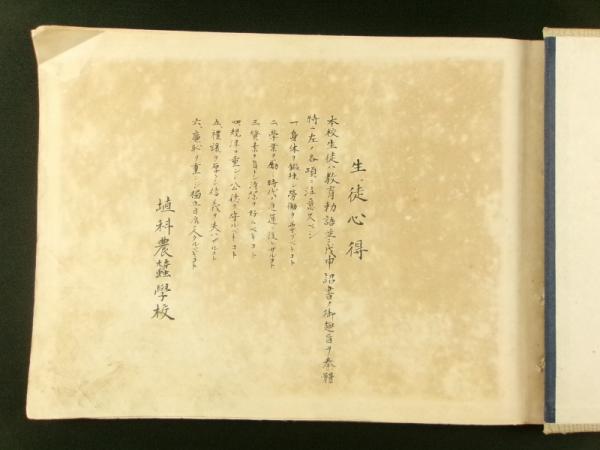 生徒心得
本校生徒ハ教育勅語並ニ戊申詔書ノ御趣旨ヲ奉體
特ニ左ノ各項ニ注意スベシ
一、身体ヲ鍛錬シ労働ヲ
二、學業ヲ励ミ時代ノ進運ニ後レザルコト
三、質素ヲ旨トシ清潔ヲ好ムベキコト
四、規律ヲ重ンジ公徳ヲ守ルベキコト
五、禮譲ヲ厚クシ信義ヲ失ハザルコト
六、廉恥ヲ重ンジ獨立自営ノ人タルベキコト
埴科農蠶學校